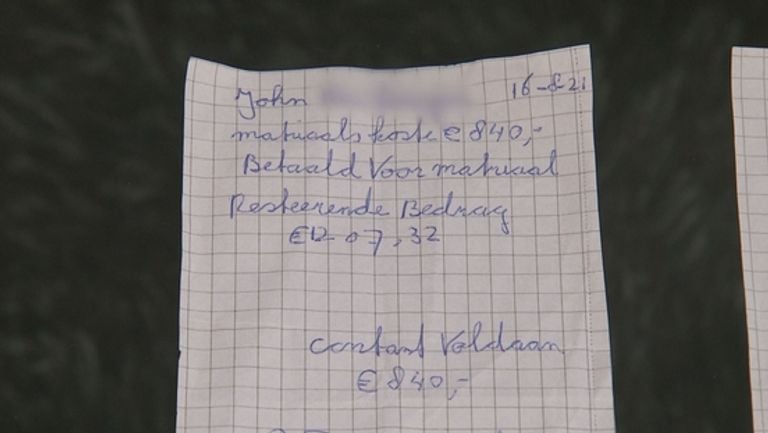 John 16-8-21
matriaals koste € 840,-
Betaald Voor matriaal
Resteerende Bedrag
€1207,32
contant Voldaan
€ 840,-